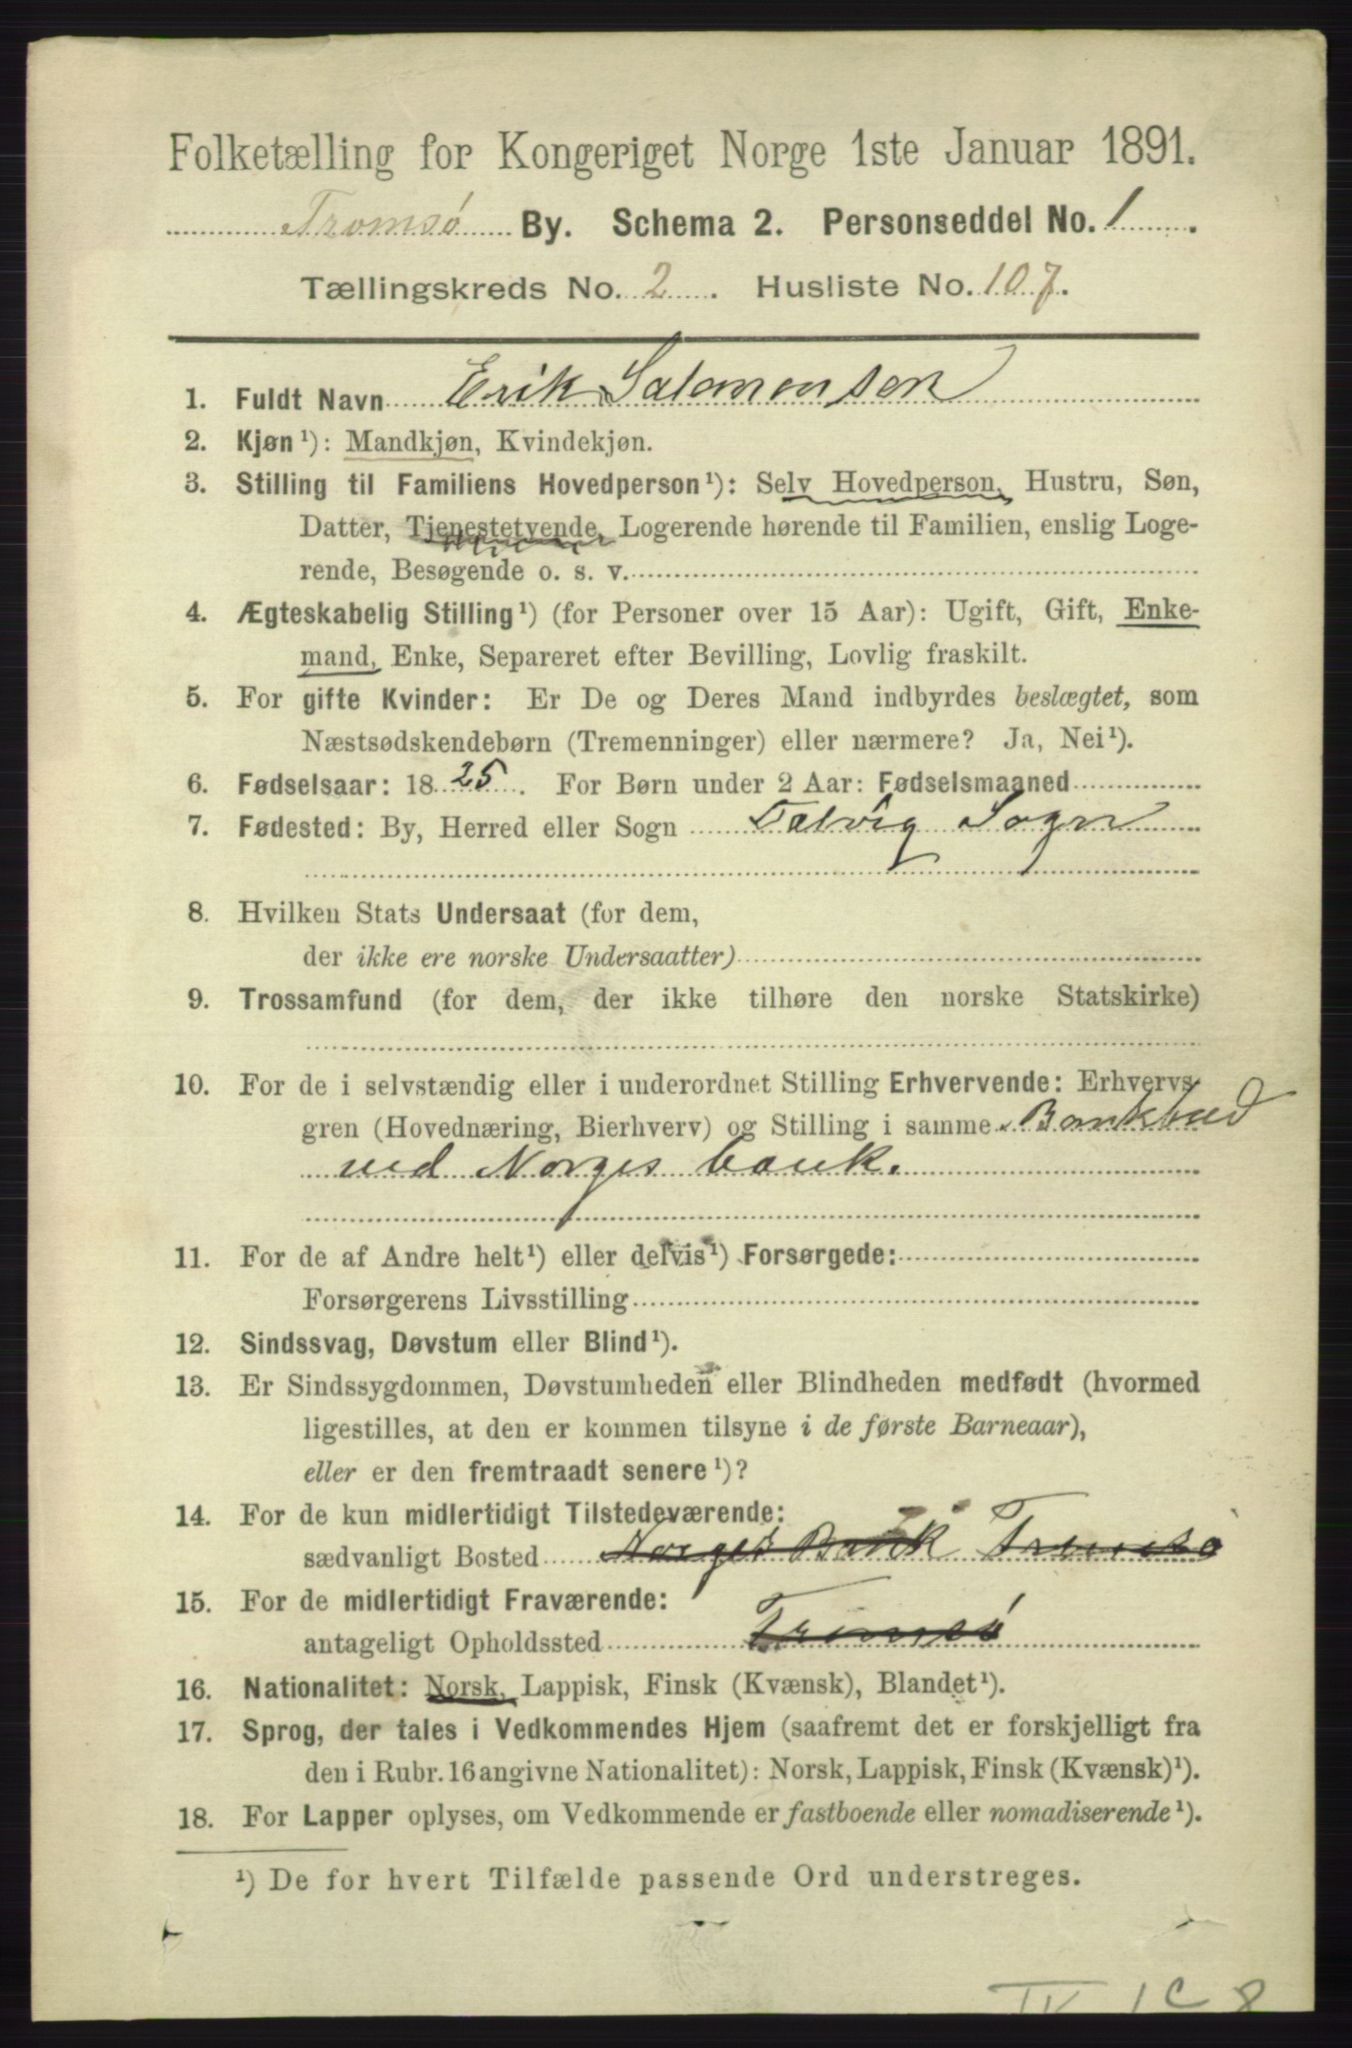 Folketælling for Kongeriget Norge 1ste Januar 1891.
Tromsø By. Schema 2. Personseddel No. 1.
Tællingskreds No. 2. Husliste No. 107.
1. Fuldt Navn Erik Salomonsen
2. Kjøn¹): Mandkjøn, Kvindekjøn.
3. Stilling til Familiens Hovedperson¹): Selv Hovedperson, Hustru, Søn,
Datter, Tjenestetyende, Logerende hørende til Familien, enslig Loge-
rende, Besøgende o. s. v.
4. Ægteskabelig Stilling¹) (for Personer over 15 Aar): Ugift, Gift, Enke-
mand, Enke, Separeret efter Bevilling, Lovlig fraskilt.
5. For gifte Kvinder: Er De og Deres Mand indbyrdes beslægtet, som
Næstsødskendebørn (Tremenninger) eller nærmere? Ja, Nei¹).
6. Fødselsaar: 1825. For Børn under 2 Aar: Fødselsmaaned
7. Fødested: By, Herred eller Sogn Talvig Sogn
8. Hvilken Stats Undersaat (for dem,
der ikke ere norske Undersaatter)
9. Trossamfund (for dem, der ikke tilhøre den norske Statskirke)
10. For de i selvstændig eller i underordnet Stilling Erhvervende: Erhvervs-
gren (Hovednæring, Bierhverv) og Stilling i samme Bankbud
ved Norges bank.
11. For de af Andre helt¹) eller delvis¹) Forsørgede:
Forsørgerens Livsstilling
12. Sindssvag, Døvstum eller Blind¹).
13. Er Sindssygdommen, Døvstumheden eller Blindheden medfødt (hvormed
ligestilles, at den er kommen tilsyne i de første Barneaar),
eller er den fremtraadt senere¹)?
14. For de kun midlertidigt Tilstedeværende:
sædvanligt Bosted Norges Bank Tromsø
15. For de midlertidigt Fraværende:
antageligt Opholdssted Tromsø
16. Nationalitet: Norsk, Lappisk, Finsk (Kvænsk), Blandet¹).
17. Sprog, der tales i Vedkommendes Hjem (saafremt det er forskjelligt fra
den i Rubr. 16 angivne Nationalitet): Norsk, Lappisk, Finsk (Kvænsk)¹).
18. For Lapper oplyses, om Vedkommende er fastboende eller nomadiserende¹).
¹) De for hvert Tilfælde passende Ord understreges.
IV 1 C 8